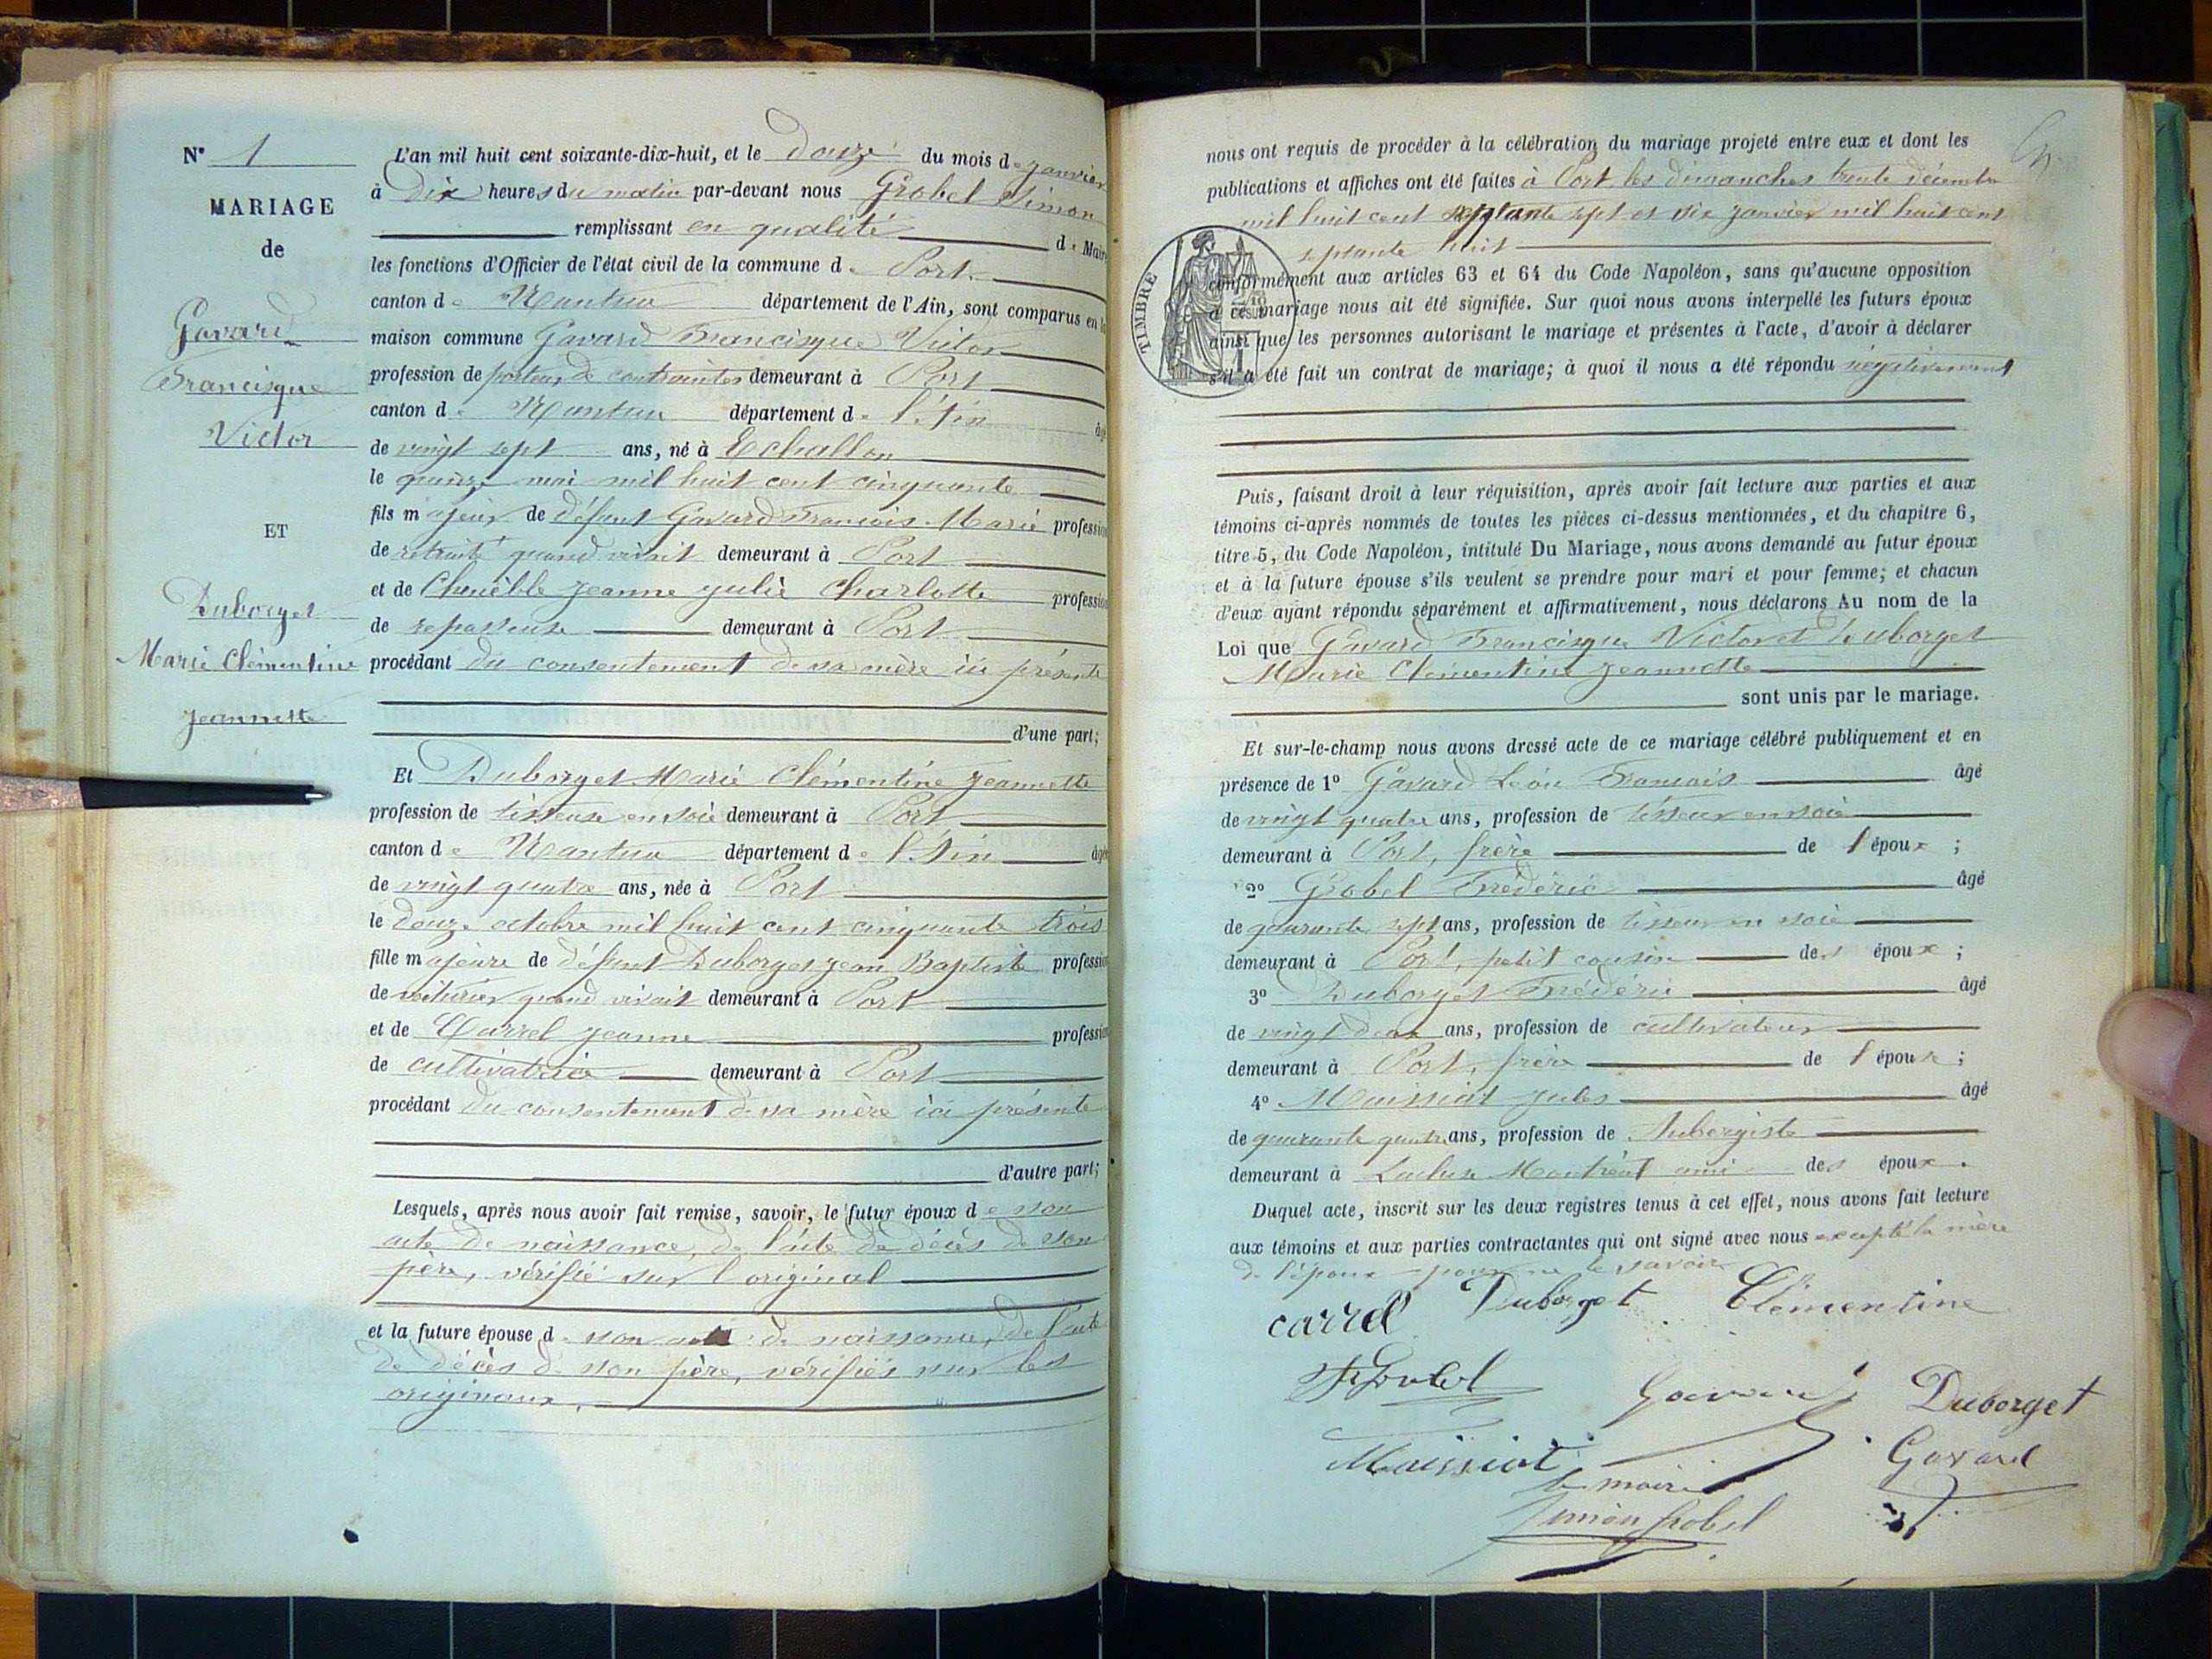 N° 1
MARIAGE
de
Gavard
Francisque
Victor
ET
Duborget
Marie Clémentine
Jeannette
L'an mil huit cent soixante-dix-huit, et le Douze du mois de janvier
à Dix heures du matin par-devant nous Grobel Simon
remplissant en qualité de Maire
les fonctions d'Officier de l'état civil de la commune de Port
canton de Nantua département de l'Ain, sont comparus en la
maison commune Gavard Francisque Victor
profession de porteur de contraintes demeurant à Port
canton de Nantua département de l'Ain âgé
de vingt sept ans, né à Echallon
le quinze mai mil huit cent cinquante
fils majeur de défunt Gavard François Marie profession
de retraité quand vivait demeurant à Port
et de Jeanne Julie Charlotte profession
de repasseuse demeurant à Port
procédant du consentement de sa mère ici présente
d'une part;
Et Duborget Marie Clémentine Jeannette
profession de tisseuse en soie demeurant à Port
canton de Nantua département de l'Ain âgée
de vingt quatre ans, née à Port
le douze octobre mil huit cent cinquante trois
fille majeure de défunt Duborget Jean Baptiste profession
de voiturier quand vivait demeurant à Port
et de Carrel Jeanne profession
de cultivatrice demeurant à Port
procédant du consentement de sa mère ici présente
d'autre part;
Lesquels, après nous avoir fait remise, savoir, le futur époux de son
acte de naissance, de l'acte de décès de son
père, vérifié sur l'original
et la future épouse de son acte de naissance, de l'acte
de décès de son père, vérifiés sur les
originaux.
nous ont requis de procéder à la célébration du mariage projeté entre eux et dont les
publications et affiches ont été faites à Port les dimanches trente décembre
mil huit cent septante sept et six janvier mil huit cent
septante huit
TIMBRE
conformément aux articles 63 et 64 du Code Napoléon, sans qu'aucune opposition
à ce mariage nous ait été signifiée. Sur quoi nous avons interpellé les futurs époux
ainsi que les personnes autorisant le mariage et présentes à l'acte, d'avoir à déclarer
s'il a été fait un contrat de mariage; à quoi il nous a été répondu négativement
Puis, faisant droit à leur réquisition, après avoir fait lecture aux parties et aux
témoins ci-après nommés de toutes les pièces ci-dessus mentionnées, et du chapitre 6,
titre 5, du Code Napoléon, intitulé Du Mariage, nous avons demandé au futur époux
et à la future épouse s'ils veulent se prendre pour mari et pour femme; et chacun
d'eux ayant répondu séparément et affirmativement, nous déclarons Au nom de la
Loi que Gavard Francisque Victor et Duborget
Marie Clémentine Jeannette
sont unis par le mariage.
Et sur-le-champ nous avons dressé acte de ce mariage célébré publiquement et en
présence de 1° Gavard Léon François âgé
de vingt quatre ans, profession de tisseur en soie
demeurant à Port, frère de l'époux ;
2° Grobel Frédéric âgé
de quarante sept ans, profession de tisseur en soie
demeurant à Port, petit cousin des époux ;
3° Duborget Frédéric âgé
de vingt deux ans, profession de cultivateur
demeurant à Port, frère de l'épouse ;
4° Maissiat Jules âgé
de quarante quatre ans, profession de Aubergiste
demeurant à Montréal ami des époux.
Duquel acte, inscrit sur les deux registres tenus à cet effet, nous avons fait lecture
aux témoins et aux parties contractantes qui ont signé avec nous excepté la mère
de l'époux pour ne le savoir
carrel Duborget Clémentine
Grobel Gavard Duborget
Maissiat Gavard
le maire
Simon Grobel